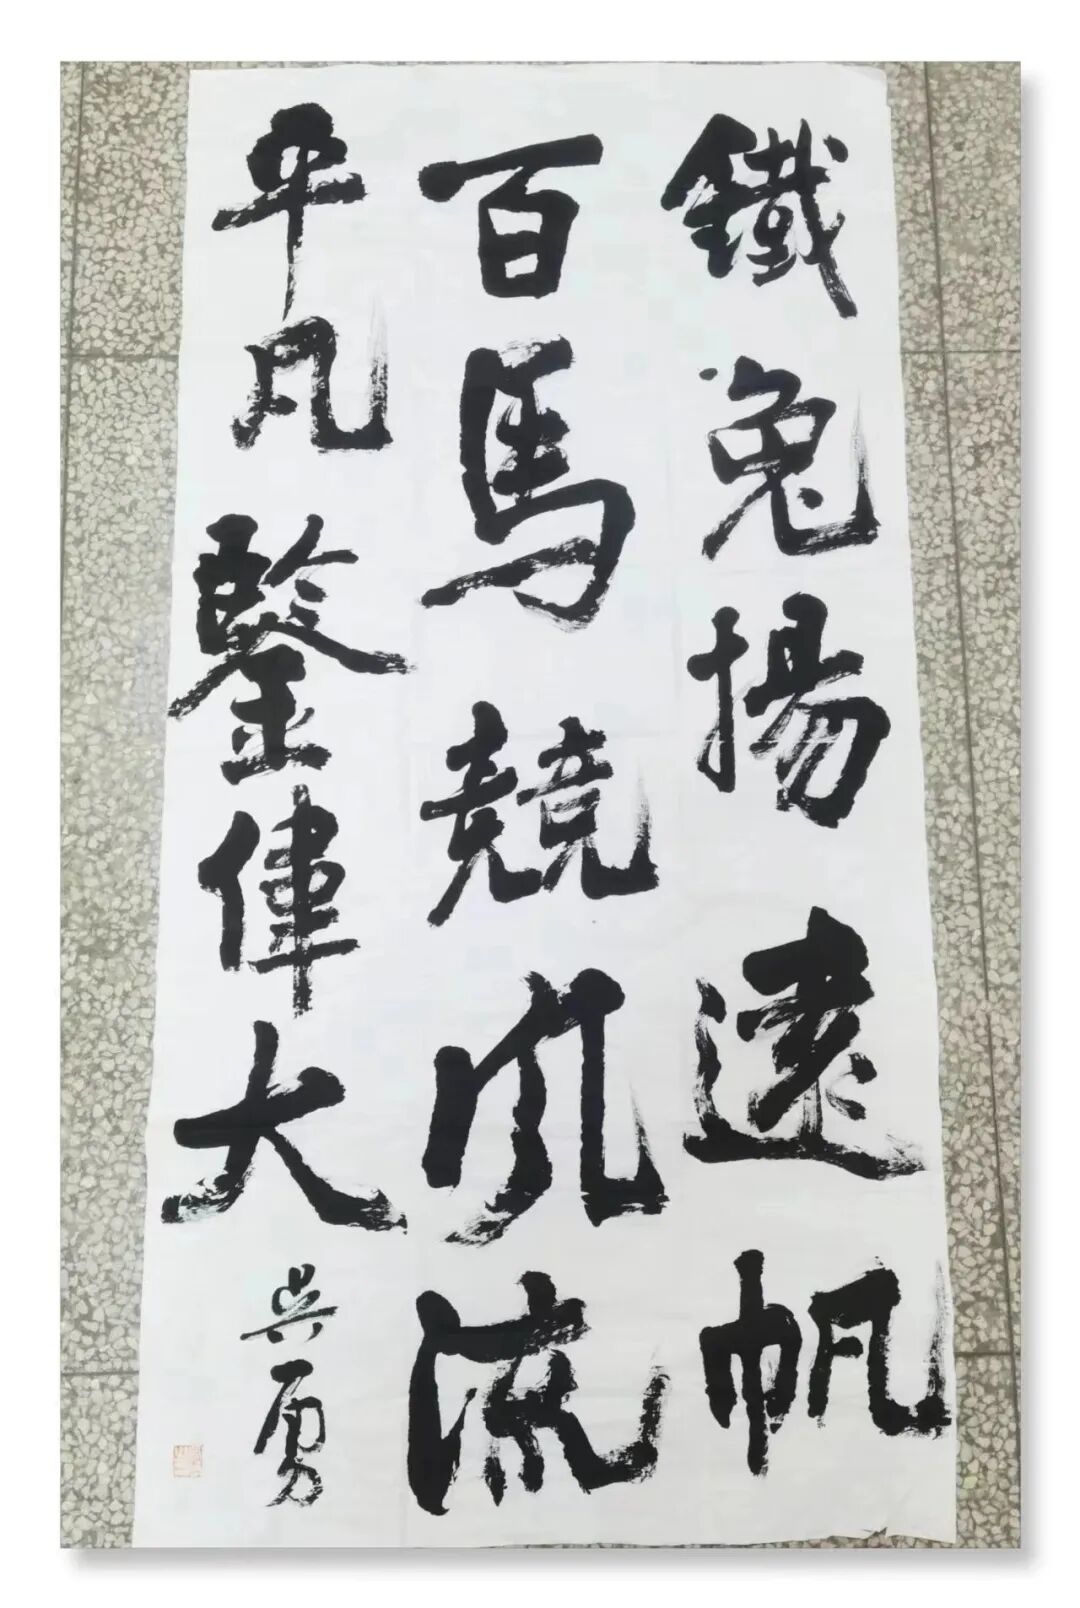 鐵兔揚遠帆
百馬競風流
平凡鑒偉大
吳勇